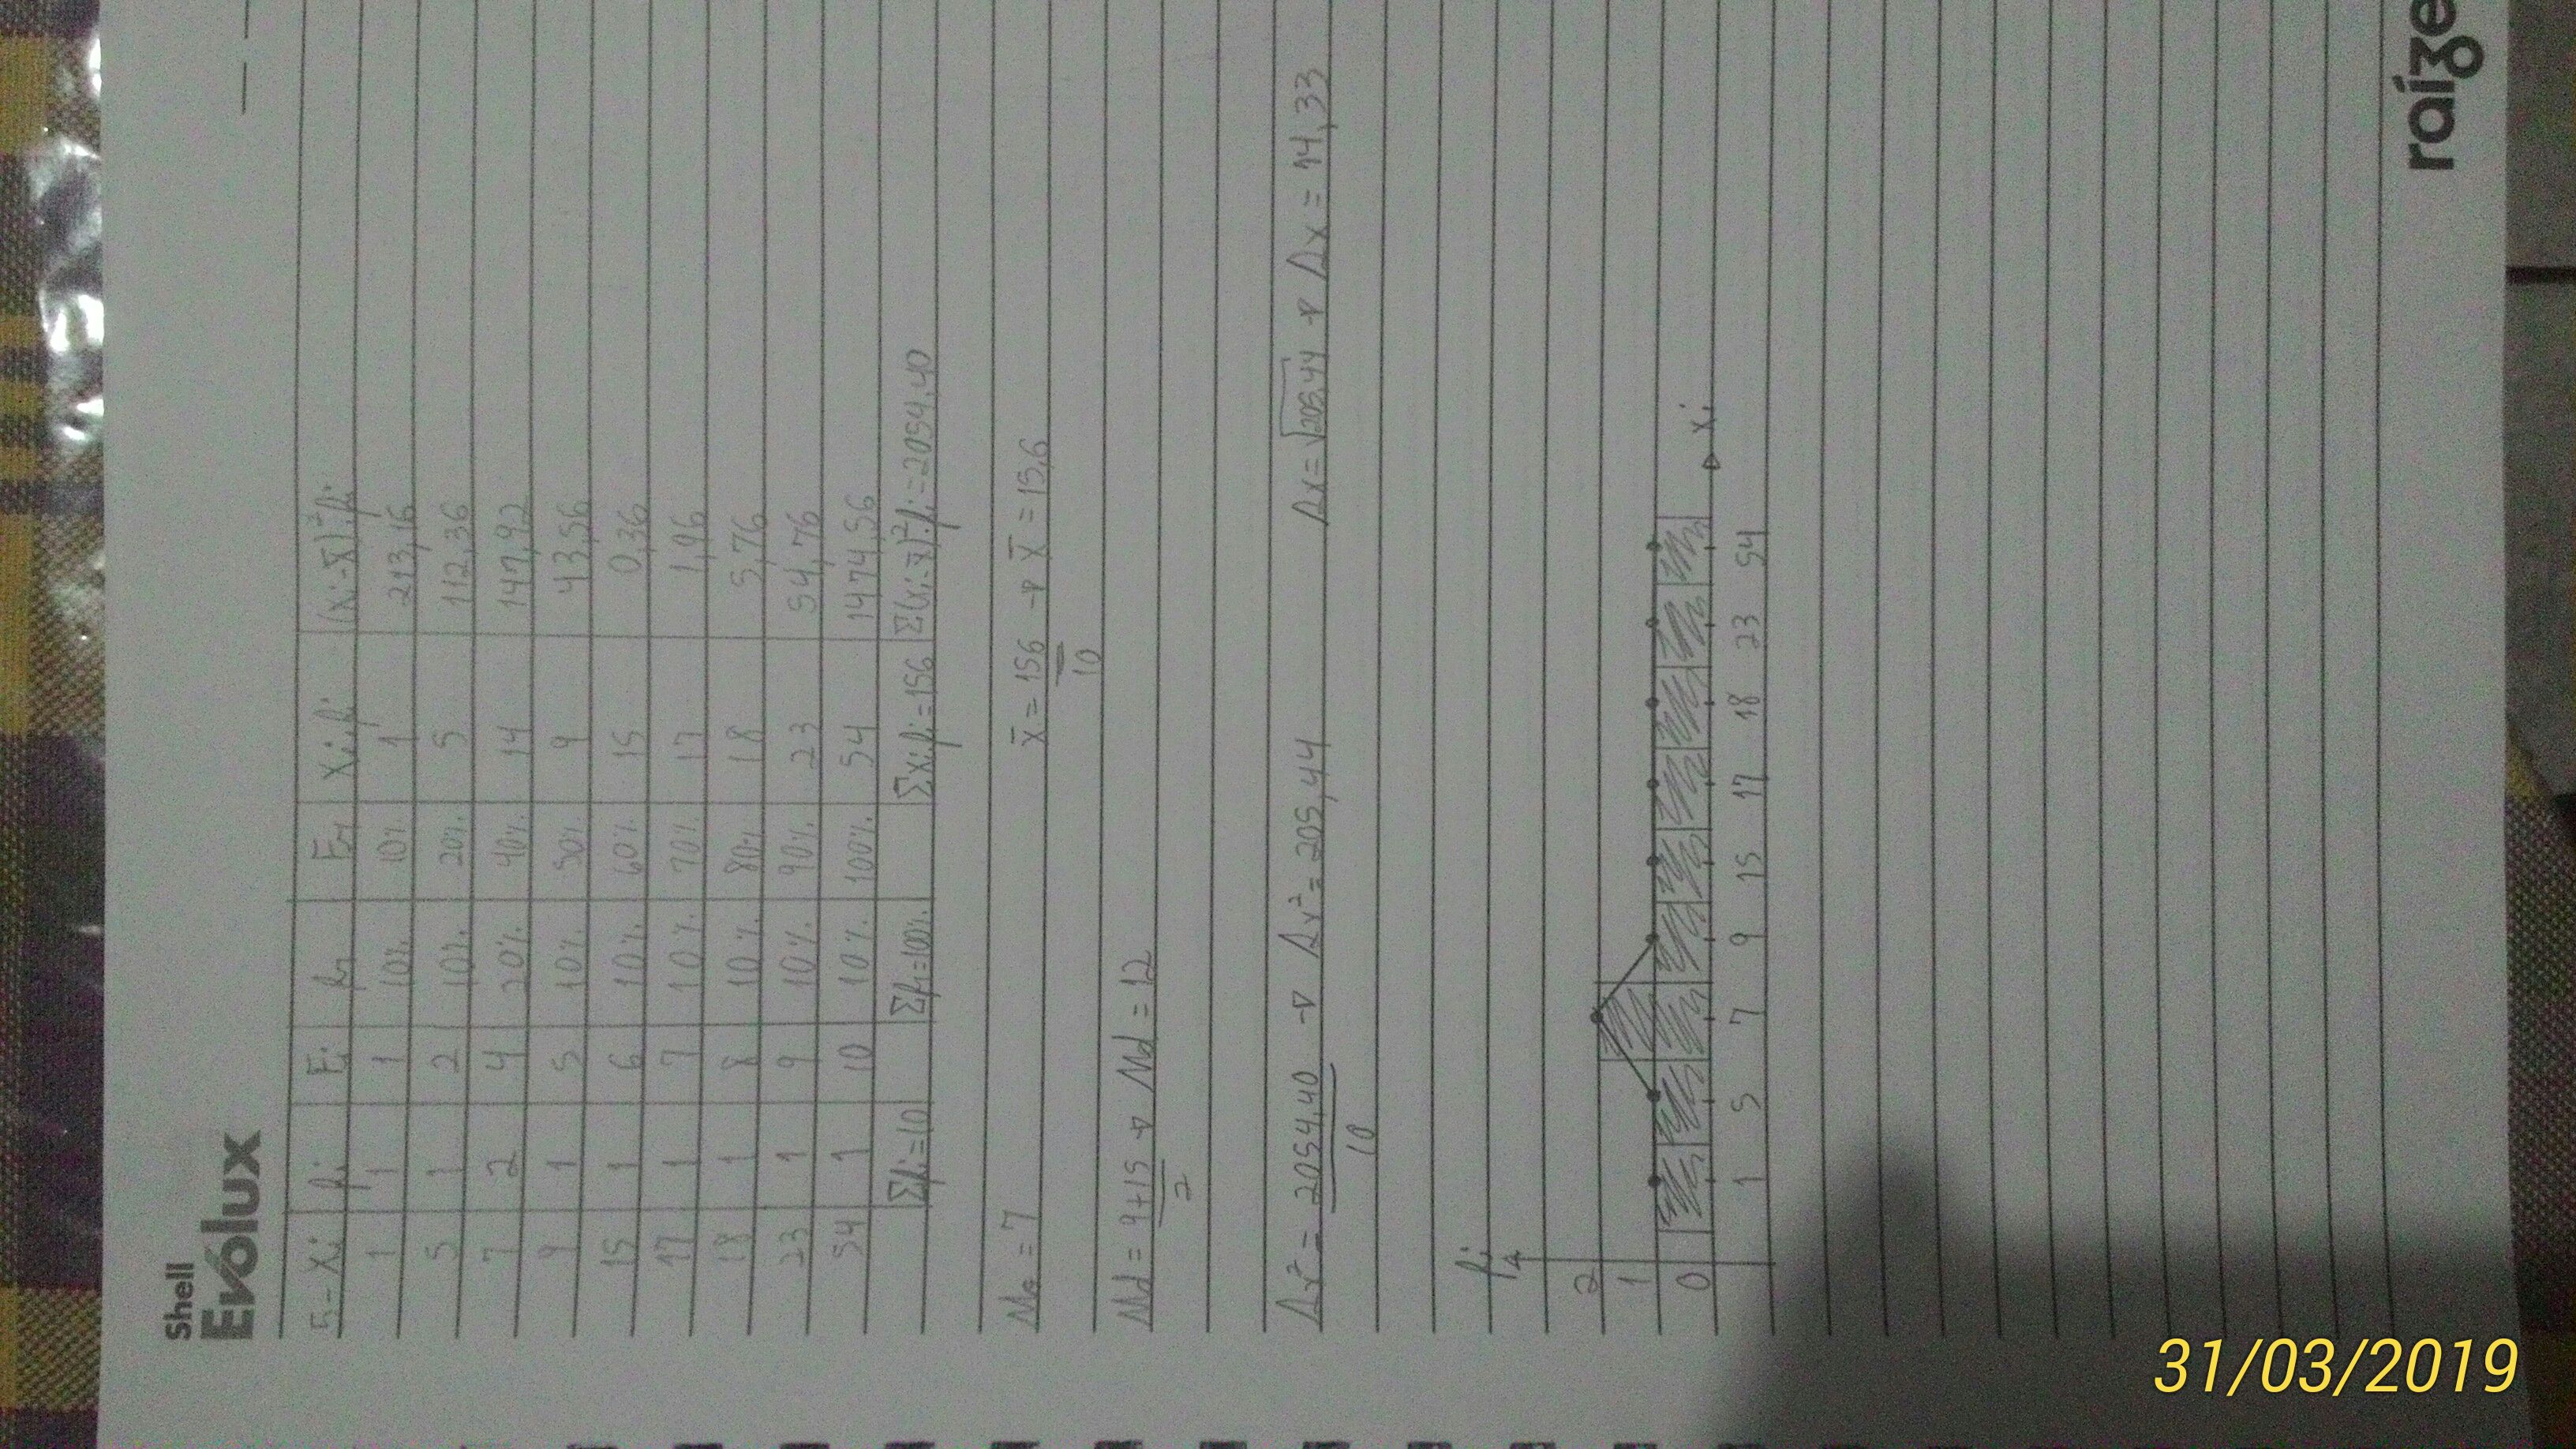 Shell
Evolux
5- Xi fi Fi fr Fr Xi.fi (Xi-X̄)².fi
1 1 1 10% 10% 1 213,16
5 1 2 10% 20% 5 112,36
7 2 4 20% 40% 14 147,92
9 1 5 10% 50% 9 43,56
15 1 6 10% 60% 15 0,36
17 1 7 10% 70% 17 1,96
18 1 8 10% 80% 18 5,76
23 1 9 10% 90% 23 54,76
54 1 10 10% 100% 54 1474,56
Σfi=10 Σfr=100% Σxi.fi=156 Σ(xi-x̄)².fi=2054,40
Mo = 7 x̄ = 156/10 → x̄ = 15,6
Md = 9+15/2 → Md = 12
Δx² = 2054,40/10 → Δx² = 205,44 Δx = √205,44 → Δx = 14,33
fi
2
1
0
xi
1 5 7 9 15 17 18 23 54
raíze
31/03/2019